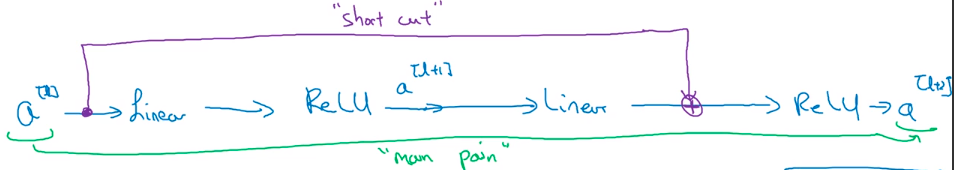 "short cut"
a^[l] → Linear → ReLU a^[l+1] → Linear ⊕ → ReLU → a^[l+2]
"main pain"